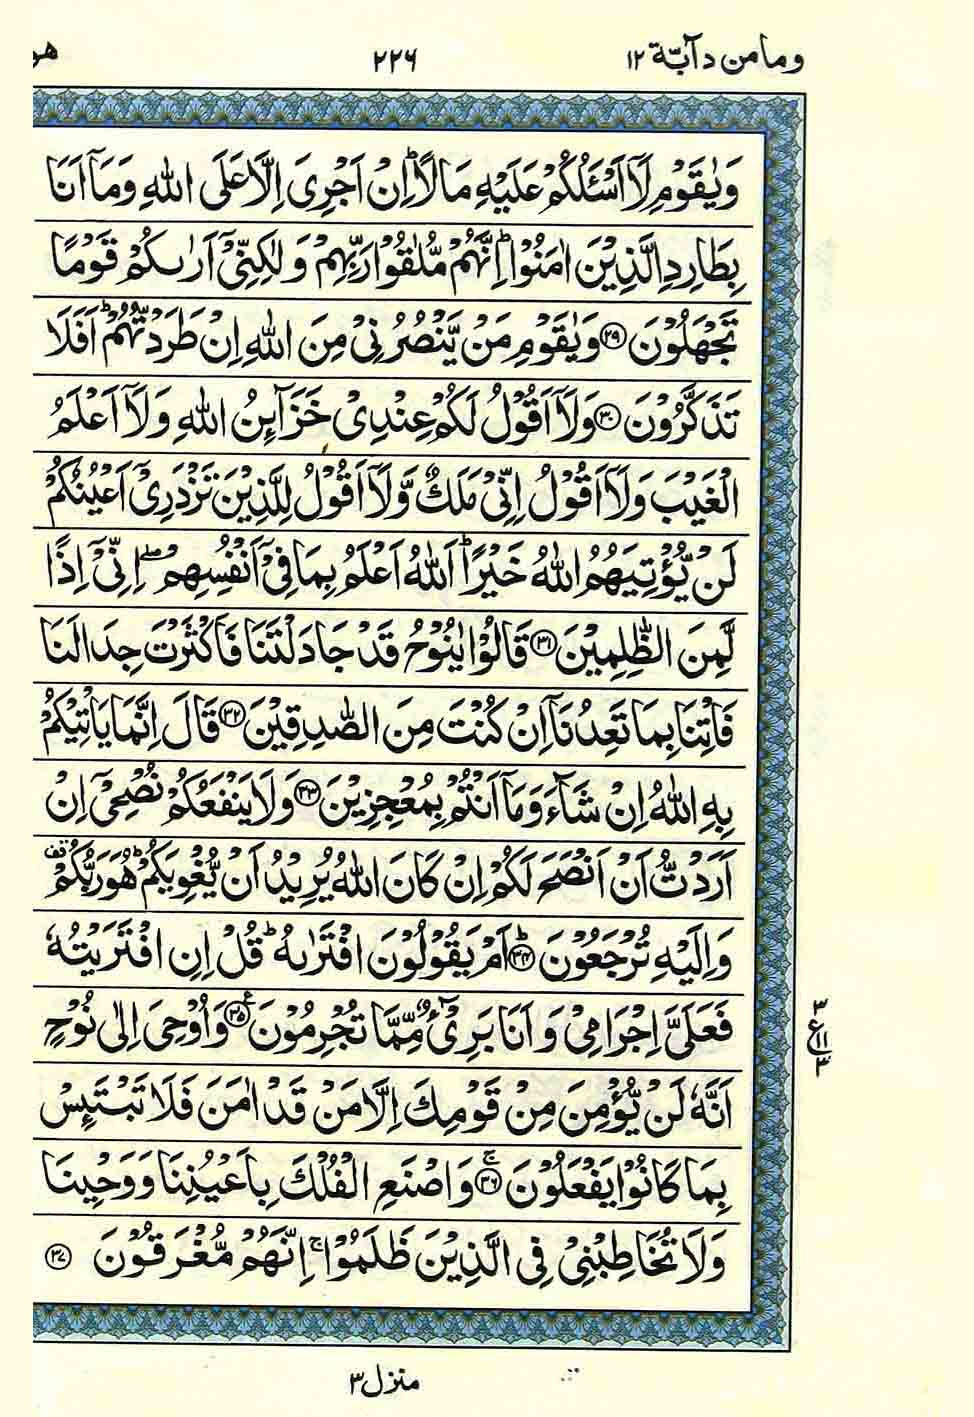 وما من دآبّة ١٢ ٢٢٦ هو
وَيٰقَوْمِ لَآ اَسْـَٔلُكُمْ عَلَيْهِ مَالًا ؕ اِنْ اَجْرِىَ اِلَّا عَلَى اللّٰهِ وَمَآ اَنَا
بِطَارِدِ الَّذِيْنَ اٰمَنُوْا ؕ اِنَّهُمْ مُّلٰقُوْا رَبِّهِمْ وَلٰكِنِّىْۤ اَرٰىكُمْ قَوْمًا
تَجْهَلُوْنَ ﴿٢٩﴾ وَيٰقَوْمِ مَنْ يَّنْصُرُنِىْ مِنَ اللّٰهِ اِنْ طَرَدْتُّهُمْ ؕ اَفَلَا
تَذَكَّرُوْنَ ﴿٣٠﴾ وَلَآ اَقُوْلُ لَكُمْ عِنْدِىْ خَزَآئِنُ اللّٰهِ وَلَآ اَعْلَمُ
الْغَيْبَ وَلَآ اَقُوْلُ اِنِّىْ مَلَكٌ وَّلَآ اَقُوْلُ لِلَّذِيْنَ تَزْدَرِىْۤ اَعْيُنُكُمْ
لَنْ يُّؤْتِيَهُمُ اللّٰهُ خَيْرًا ؕ اَللّٰهُ اَعْلَمُ بِمَا فِىْۤ اَنْفُسِهِمْ ۖۚ اِنِّىْۤ اِذًا
لَّمِنَ الظّٰلِمِيْنَ ﴿٣١﴾ قَالُوْا يٰنُوْحُ قَدْ جَادَلْتَنَا فَاَكْثَرْتَ جِدَالَنَا
فَاْتِنَا بِمَا تَعِدُنَآ اِنْ كُنْتَ مِنَ الصّٰدِقِيْنَ ﴿٣٢﴾ قَالَ اِنَّمَا يَاْتِيْكُمْ
بِهِ اللّٰهُ اِنْ شَآءَ وَمَآ اَنْتُمْ بِمُعْجِزِيْنَ ﴿٣٣﴾ وَلَا يَنْفَعُكُمْ نُصْحِىْۤ اِنْ
اَرَدْتُّ اَنْ اَنْصَحَ لَكُمْ اِنْ كَانَ اللّٰهُ يُرِيْدُ اَنْ يُّغْوِيَكُمْ ؕ هُوَ رَبُّكُمْ قف
وَاِلَيْهِ تُرْجَعُوْنَ ؕ﴿٣٤﴾ اَمْ يَقُوْلُوْنَ افْتَرٰىهُ ؕ قُلْ اِنِ افْتَرَيْتُهٗ
فَعَلَىَّ اِجْرَامِىْ وَاَنَا بَرِىْٓءٌ مِّمَّا تُجْرِمُوْنَ ﴿٣٥﴾ ع وَاُوْحِىَ اِلٰى نُوْحٍ
٣ ع ١١ ٣
اَنَّهٗ لَنْ يُّؤْمِنَ مِنْ قَوْمِكَ اِلَّا مَنْ قَدْ اٰمَنَ فَلَا تَبْتَئِسْ
بِمَا كَانُوْا يَفْعَلُوْنَ ۚ﴿٣٦﴾ وَاصْنَعِ الْفُلْكَ بِاَعْيُنِنَا وَوَحْيِنَا
وَلَا تُخَاطِبْنِىْ فِى الَّذِيْنَ ظَلَمُوْا ۚ اِنَّهُمْ مُّغْرَقُوْنَ ﴿٣٧﴾
منزل ٣